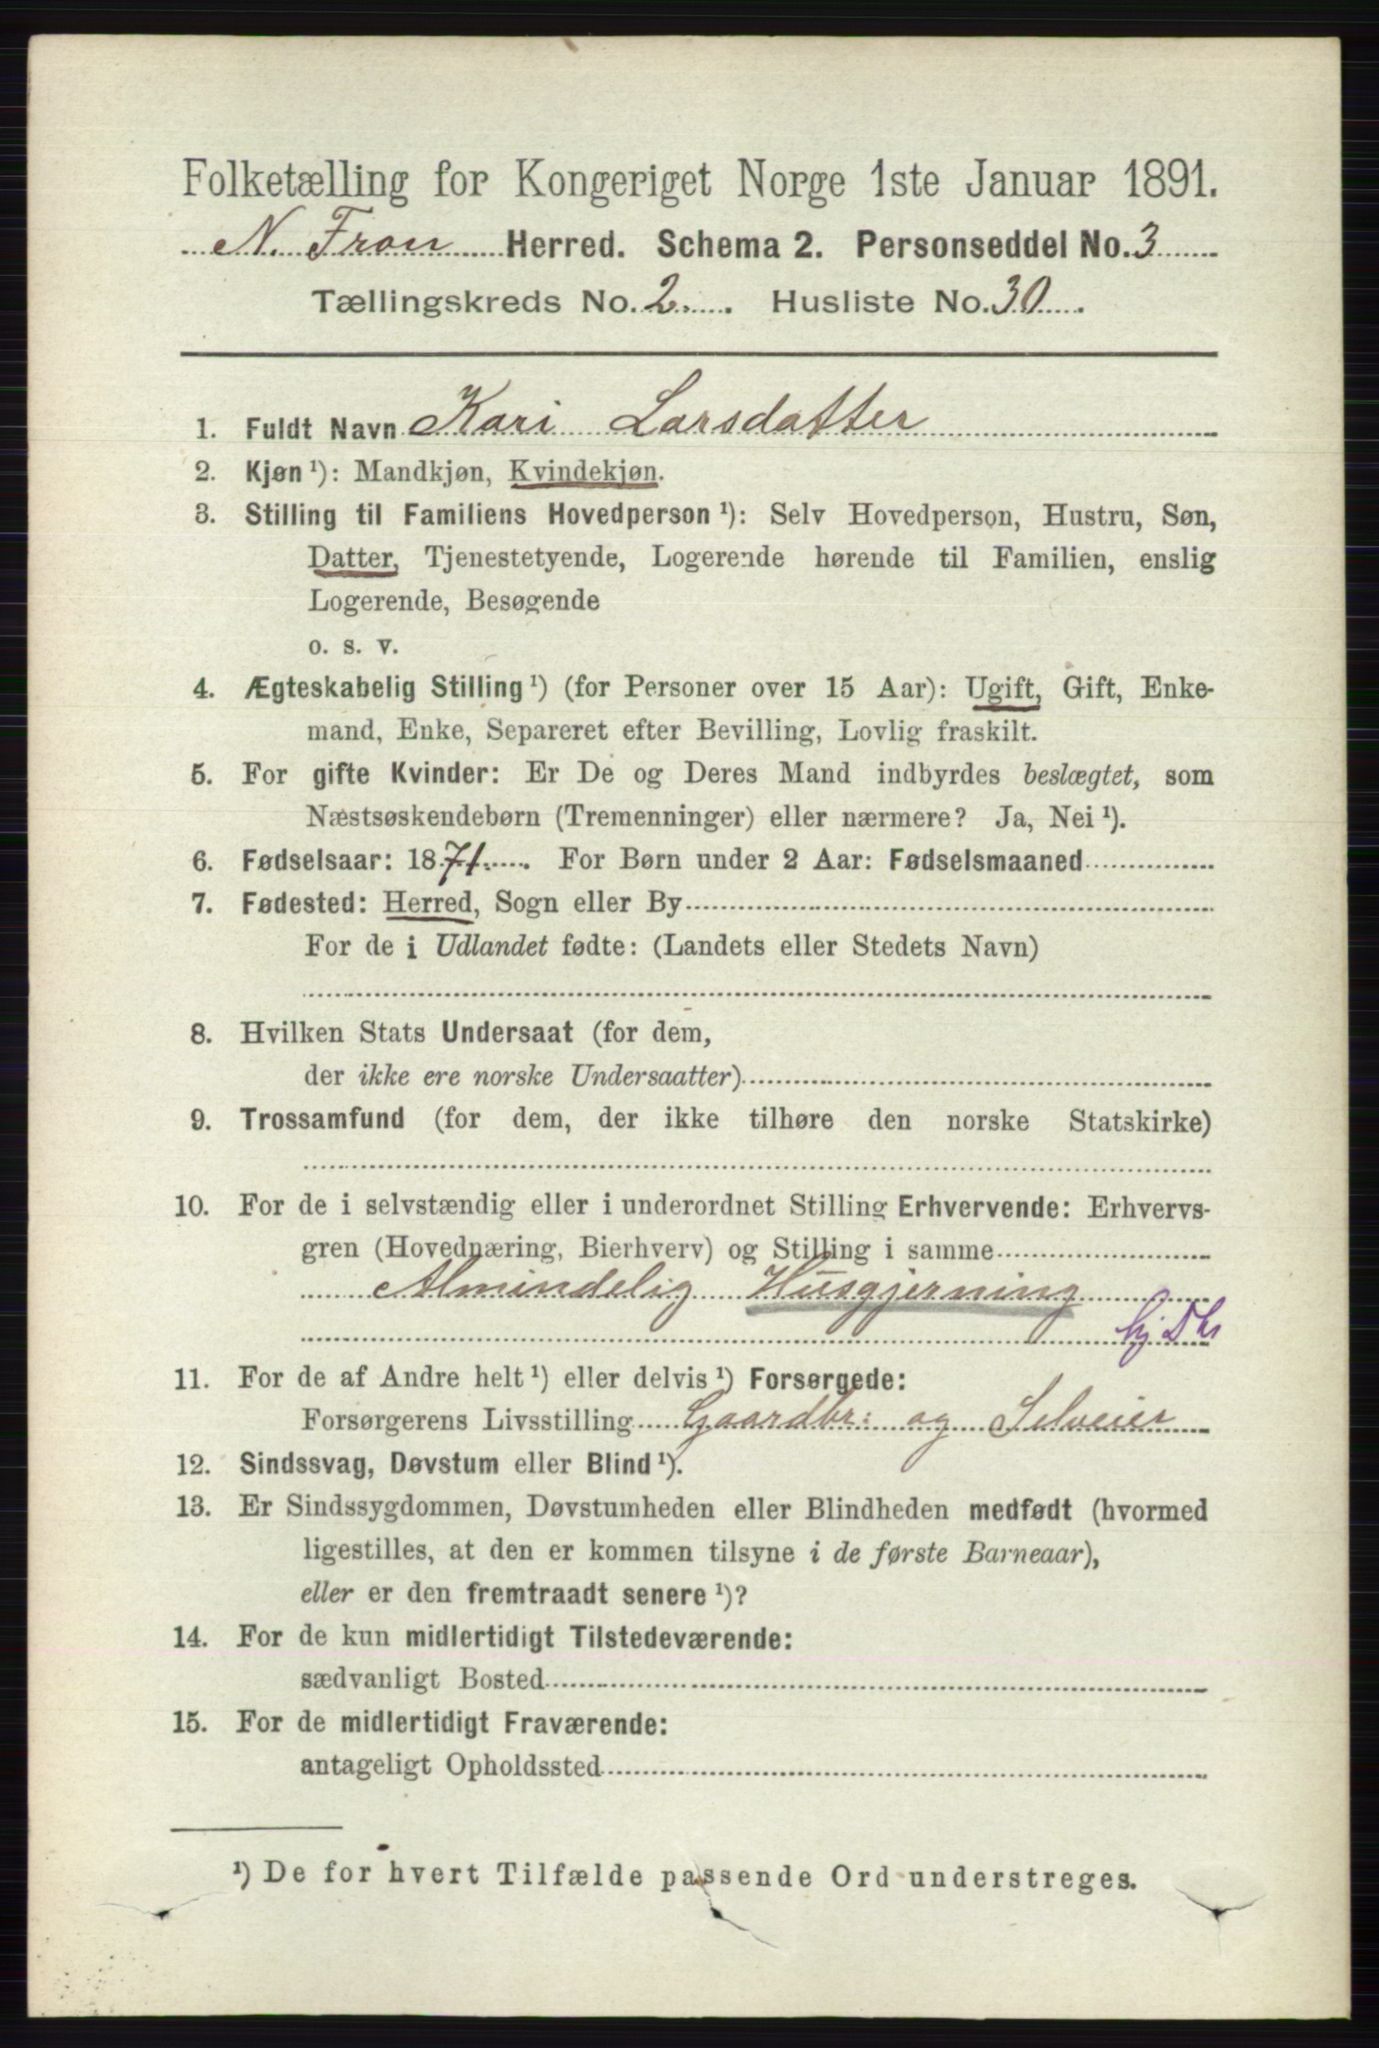 Folketælling for Kongeriget Norge 1ste Januar 1891.
N. Fron Herred. Schema 2. Personseddel No. 3
Tællingskreds No. 2. Husliste No. 30.
1. Fuldt Navn Kari Larsdatter
2. Kjøn ¹): Mandkjøn, Kvindekjøn.
3. Stilling til Familiens Hovedperson ¹): Selv Hovedperson, Hustru, Søn,
Datter, Tjenestetyende, Logerende hørende til Familien, enslig
Logerende, Besøgende
o. s. v.
4. Ægteskabelig Stilling ¹) (for Personer over 15 Aar): Ugift, Gift, Enke-
mand, Enke, Separeret efter Bevilling, Lovlig fraskilt.
5. For gifte Kvinder: Er De og Deres Mand indbyrdes beslægtet, som
Næstsøskendebørn (Tremenninger) eller nærmere? Ja, Nei ¹).
6. Fødselsaar: 1871. For Børn under 2 Aar: Fødselsmaaned
7. Fødested: Herred, Sogn eller By
For de i Udlandet fødte: (Landets eller Stedets Navn)
8. Hvilken Stats Undersaat (for dem,
der ikke ere norske Undersaatter)
9. Trossamfund (for dem, der ikke tilhøre den norske Statskirke)
10. For de i selvstændig eller i underordnet Stilling Erhvervende: Erhvervs-
gren (Hovednæring, Bierhverv) og Stilling i samme
Almindelig Husgjerning
11. For de af Andre helt ¹) eller delvis ¹) Forsørgede:
Forsørgerens Livsstilling Gaardbr: og Selveier
12. Sindssvag, Døvstum eller Blind ¹).
13. Er Sindssygdommen, Døvstumheden eller Blindheden medfødt (hvormed
ligestilles, at den er kommen tilsyne i de første Barneaar),
eller er den fremtraadt senere ¹)?
14. For de kun midlertidigt Tilstedeværende:
sædvanligt Bosted
15. For de midlertidigt Fraværende:
antageligt Opholdssted
¹) De for hvert Tilfælde passende Ord understreges.